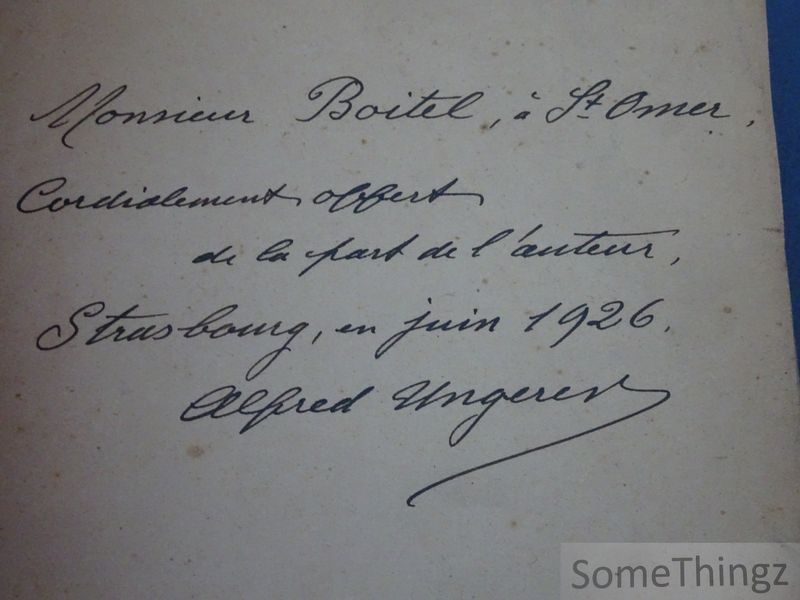 Monsieur Boitel, à St. Omer.
Cordialement offert
de la part de l'auteur,
Strasbourg, en juin 1926.
Alfred Ungerer
SomeThingz